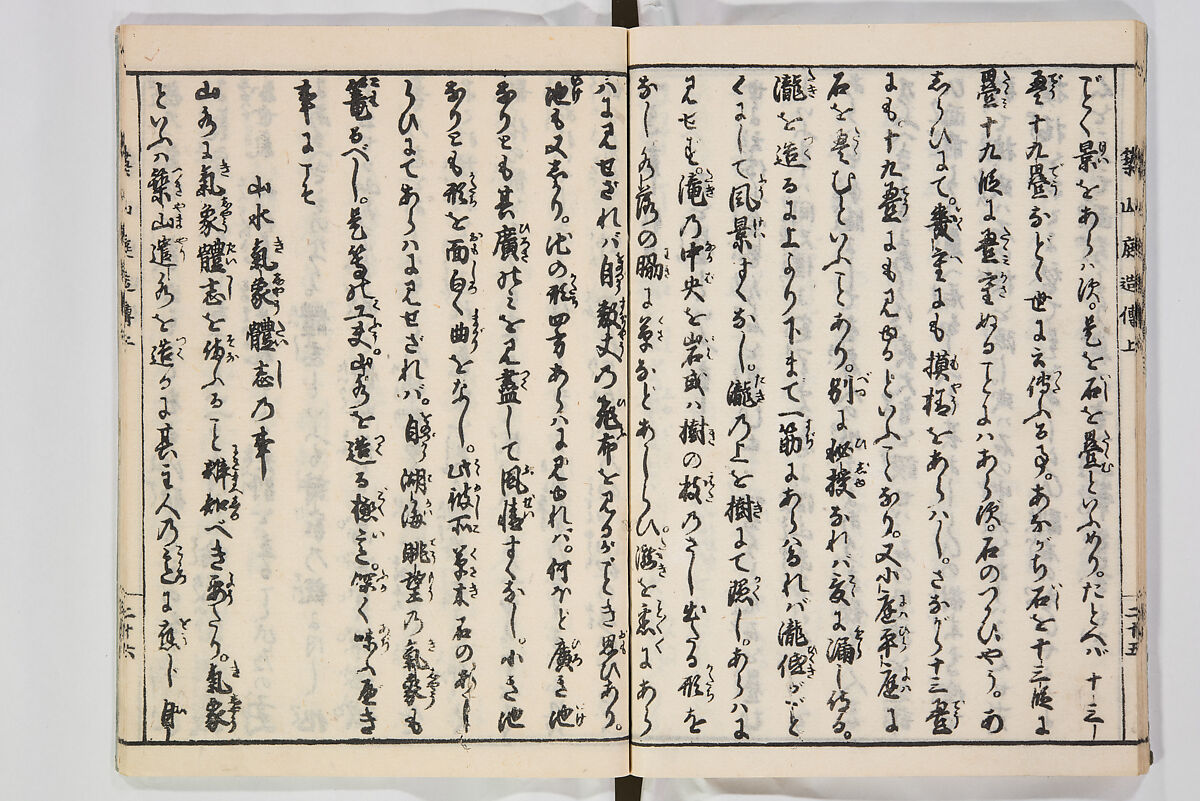 築山庭造傳上
でく景をあらハ須。是を石を疊といふめり。たとへバ十三
疊十九疊などゝ世に云傳ふる事。あながち石を十三段に
疊十九段に疊重ぬることにハあら須。石のつかひやう。あ
しらひにて。幾重にも摸様をあらハし。さながら十三疊
にも。十九疊にも見ゆるといふことなり。又小庭平庭に
石を疊むといふことあり。別に秘授なれバ爰に漏し侍る。
瀧を造るに上より下まで一筋にあらハるれバ瀧傳がごと
くにして風景すくなし。瀧の上を樹にて隠し。あらハに
見せ須。滝乃中央を岩或ハ樹の枝乃さし出たる形を
なし水落の脇に草などあしらひ。瀧を悉にあら
二十五
ハに見せざれバ自数丈乃飛布を見るがごとき思ひあり。
池も又しかり。池の形四方あらハに見ゆれバ。何ほど廣き池
なりとも其廣けしを見盡して風情すくなし。小き池
なりとも形を面白く曲をなし。此彼所草木石の
らひにてあらハに見せざれバ。自湖海眺望の氣象も
篭るべし。是等の工夫山水を造る極意。深く味ふべき
事にこそ
山水氣象體志乃事
山水に氣象體志を備ふること辨知べき要なり。氣象
といふハ築山遣水を造るに其主人乃意に應じ
二十六